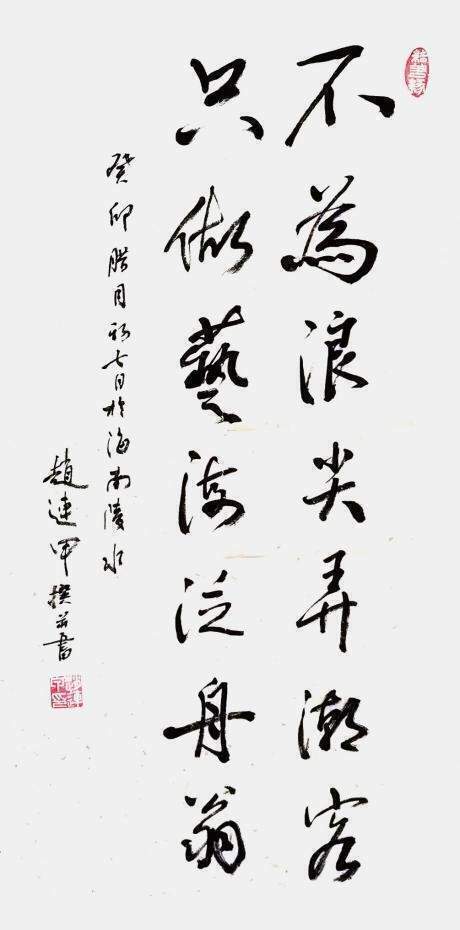 不為浪尖弄潮客
只做藝海泛舟翁
癸卯腊月初七日於海南陵水
趙連甲撰并書